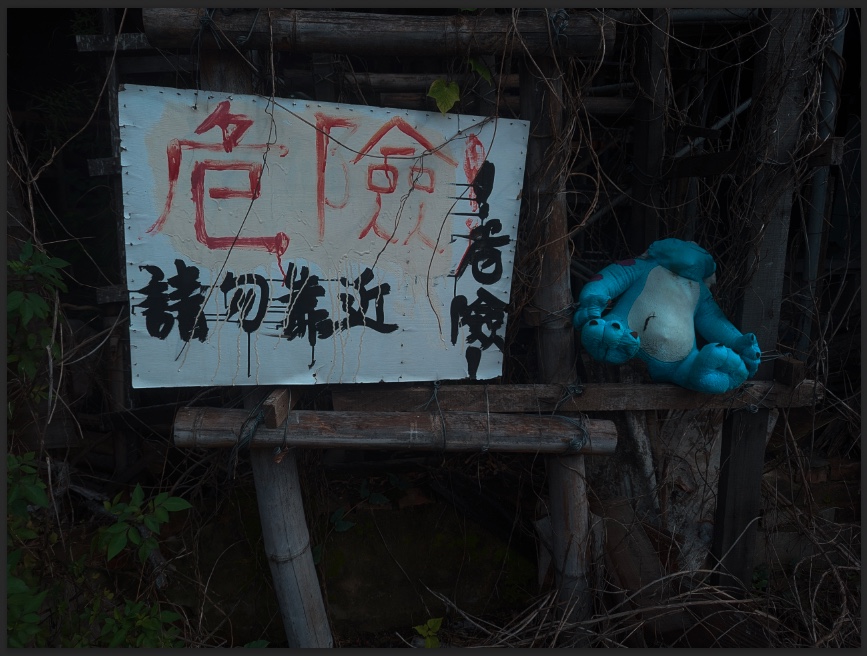 危險!
請勿靠近!
危險!